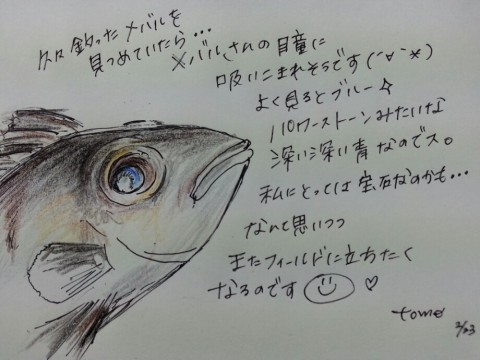 釣ったメバルを
見つめていたら…
メバルさんの目瞳に
吸いこまれそうです(´∀`*)
よく見るとブルー☆
パワーストーンみたいな
深い深い青なのでス。
私にとっては宝石なのかも…
なんて思いつつ
またフィールドに立ちたく
なるのです ♡
tomo
2/23